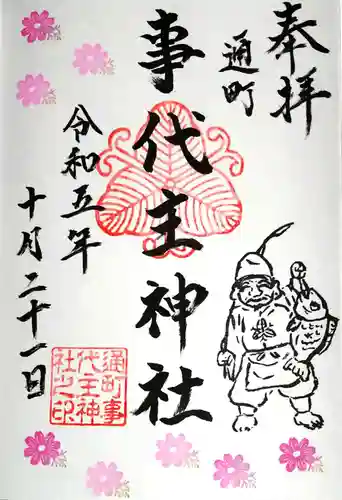 奉拝
通町
事代主神社
令和五年
十月二十一日
通町事
代主神
社之印